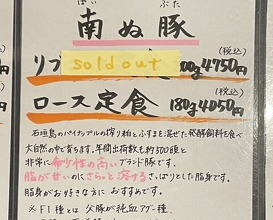 ぱい ぶた
南ぬ豚
(税込)
リブ sold out 00g 4750円
(税込)
ロース定食 180g 4050円
石垣島のパイナップルの搾り粕とふすまを混ぜた発酵飼料を食べ
大自然の中で育ちます。年間出荷数も約300頭と
非常に希少性の高いブランド豚です。
脂が甘いのにさらっと溶けるさっぱりとした脂身です。
脂身がお好きな方におすすめです。
※F1種とは 父豚が純血アグー種、